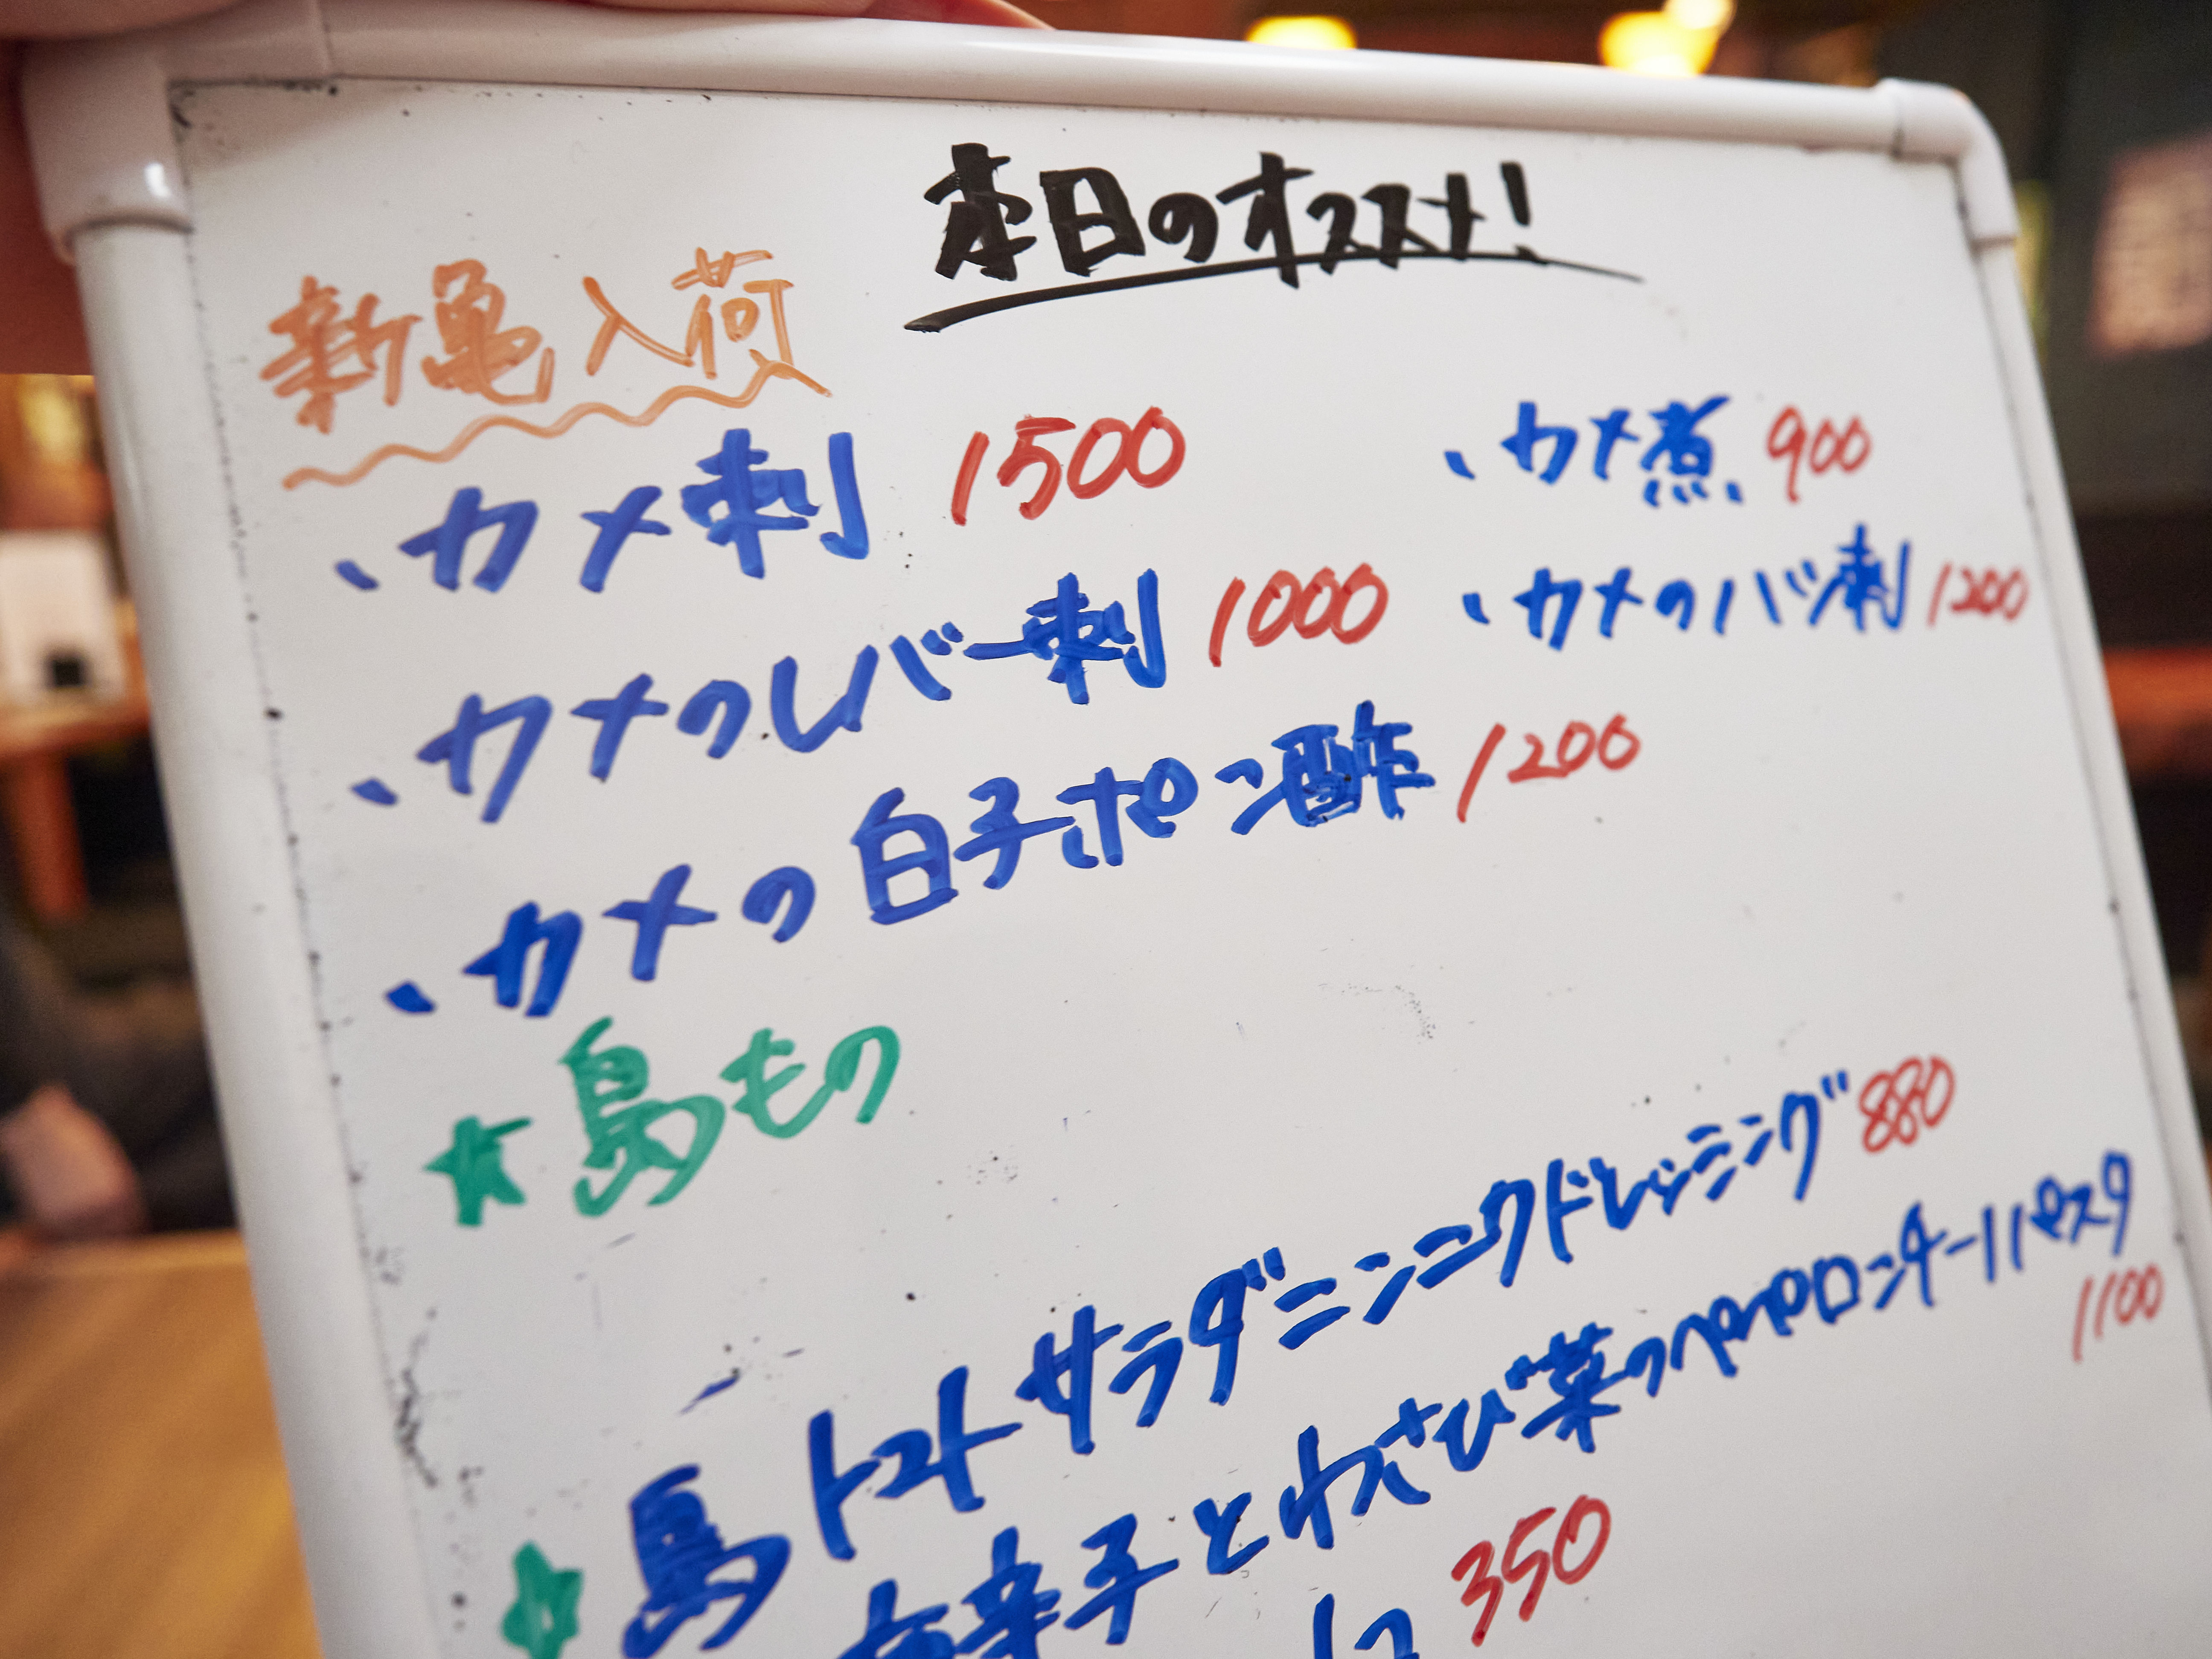 本日のオススメ!
新亀入荷
、カメ刺 1500
、カメ煮 900
、カメのレバー刺 1000
、カメのハツ刺 1200
、カメの白子ポン酢 1200
★島もの
島トマトサラダニンニクドレッシング 880
★
辛子とわさび菜のペペロンチーパスタ
1100
350